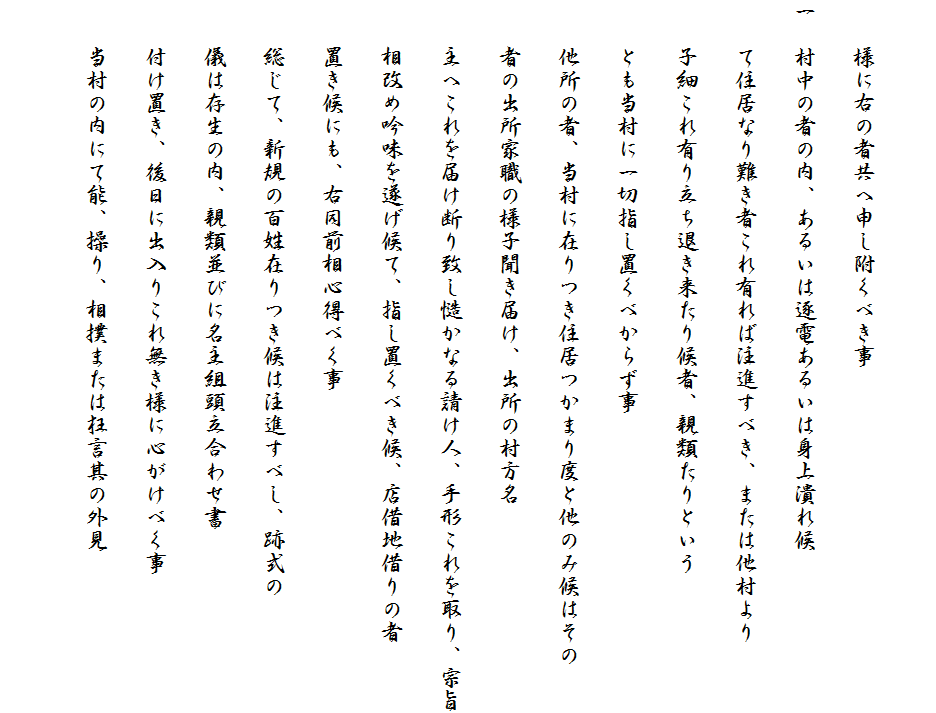 様に右の者共へ申し附くべき事
一 村中の者の内、あるいは逐電あるいは身上潰れ候
て住居なり難き者これ有れば注進すべき、または他村より
子細これ有り立ち退き来たり候者、親類たりという
とも当村に一切指し置くべからず事
他所の者、当村に在りつき住居つかまり度と他のみ候はその
者の出所家職の様子聞き届け、出所の村方名
主へこれを届け断り致し慥かなる請け人、手形これを取り、宗旨
相改め吟味を遂げ候て、指し置くべき候、店借地借りの者
置き候にも、右同前相心得べく事
総じて、新規の百姓在りつき候は注進すべし、跡式の
儀は存生の内、親類並びに名主組頭立合わせ書
付け置き、後日に出入りこれ無き様に心がけべく事
当村の内にて能、操り、相撲または狂言其の外見